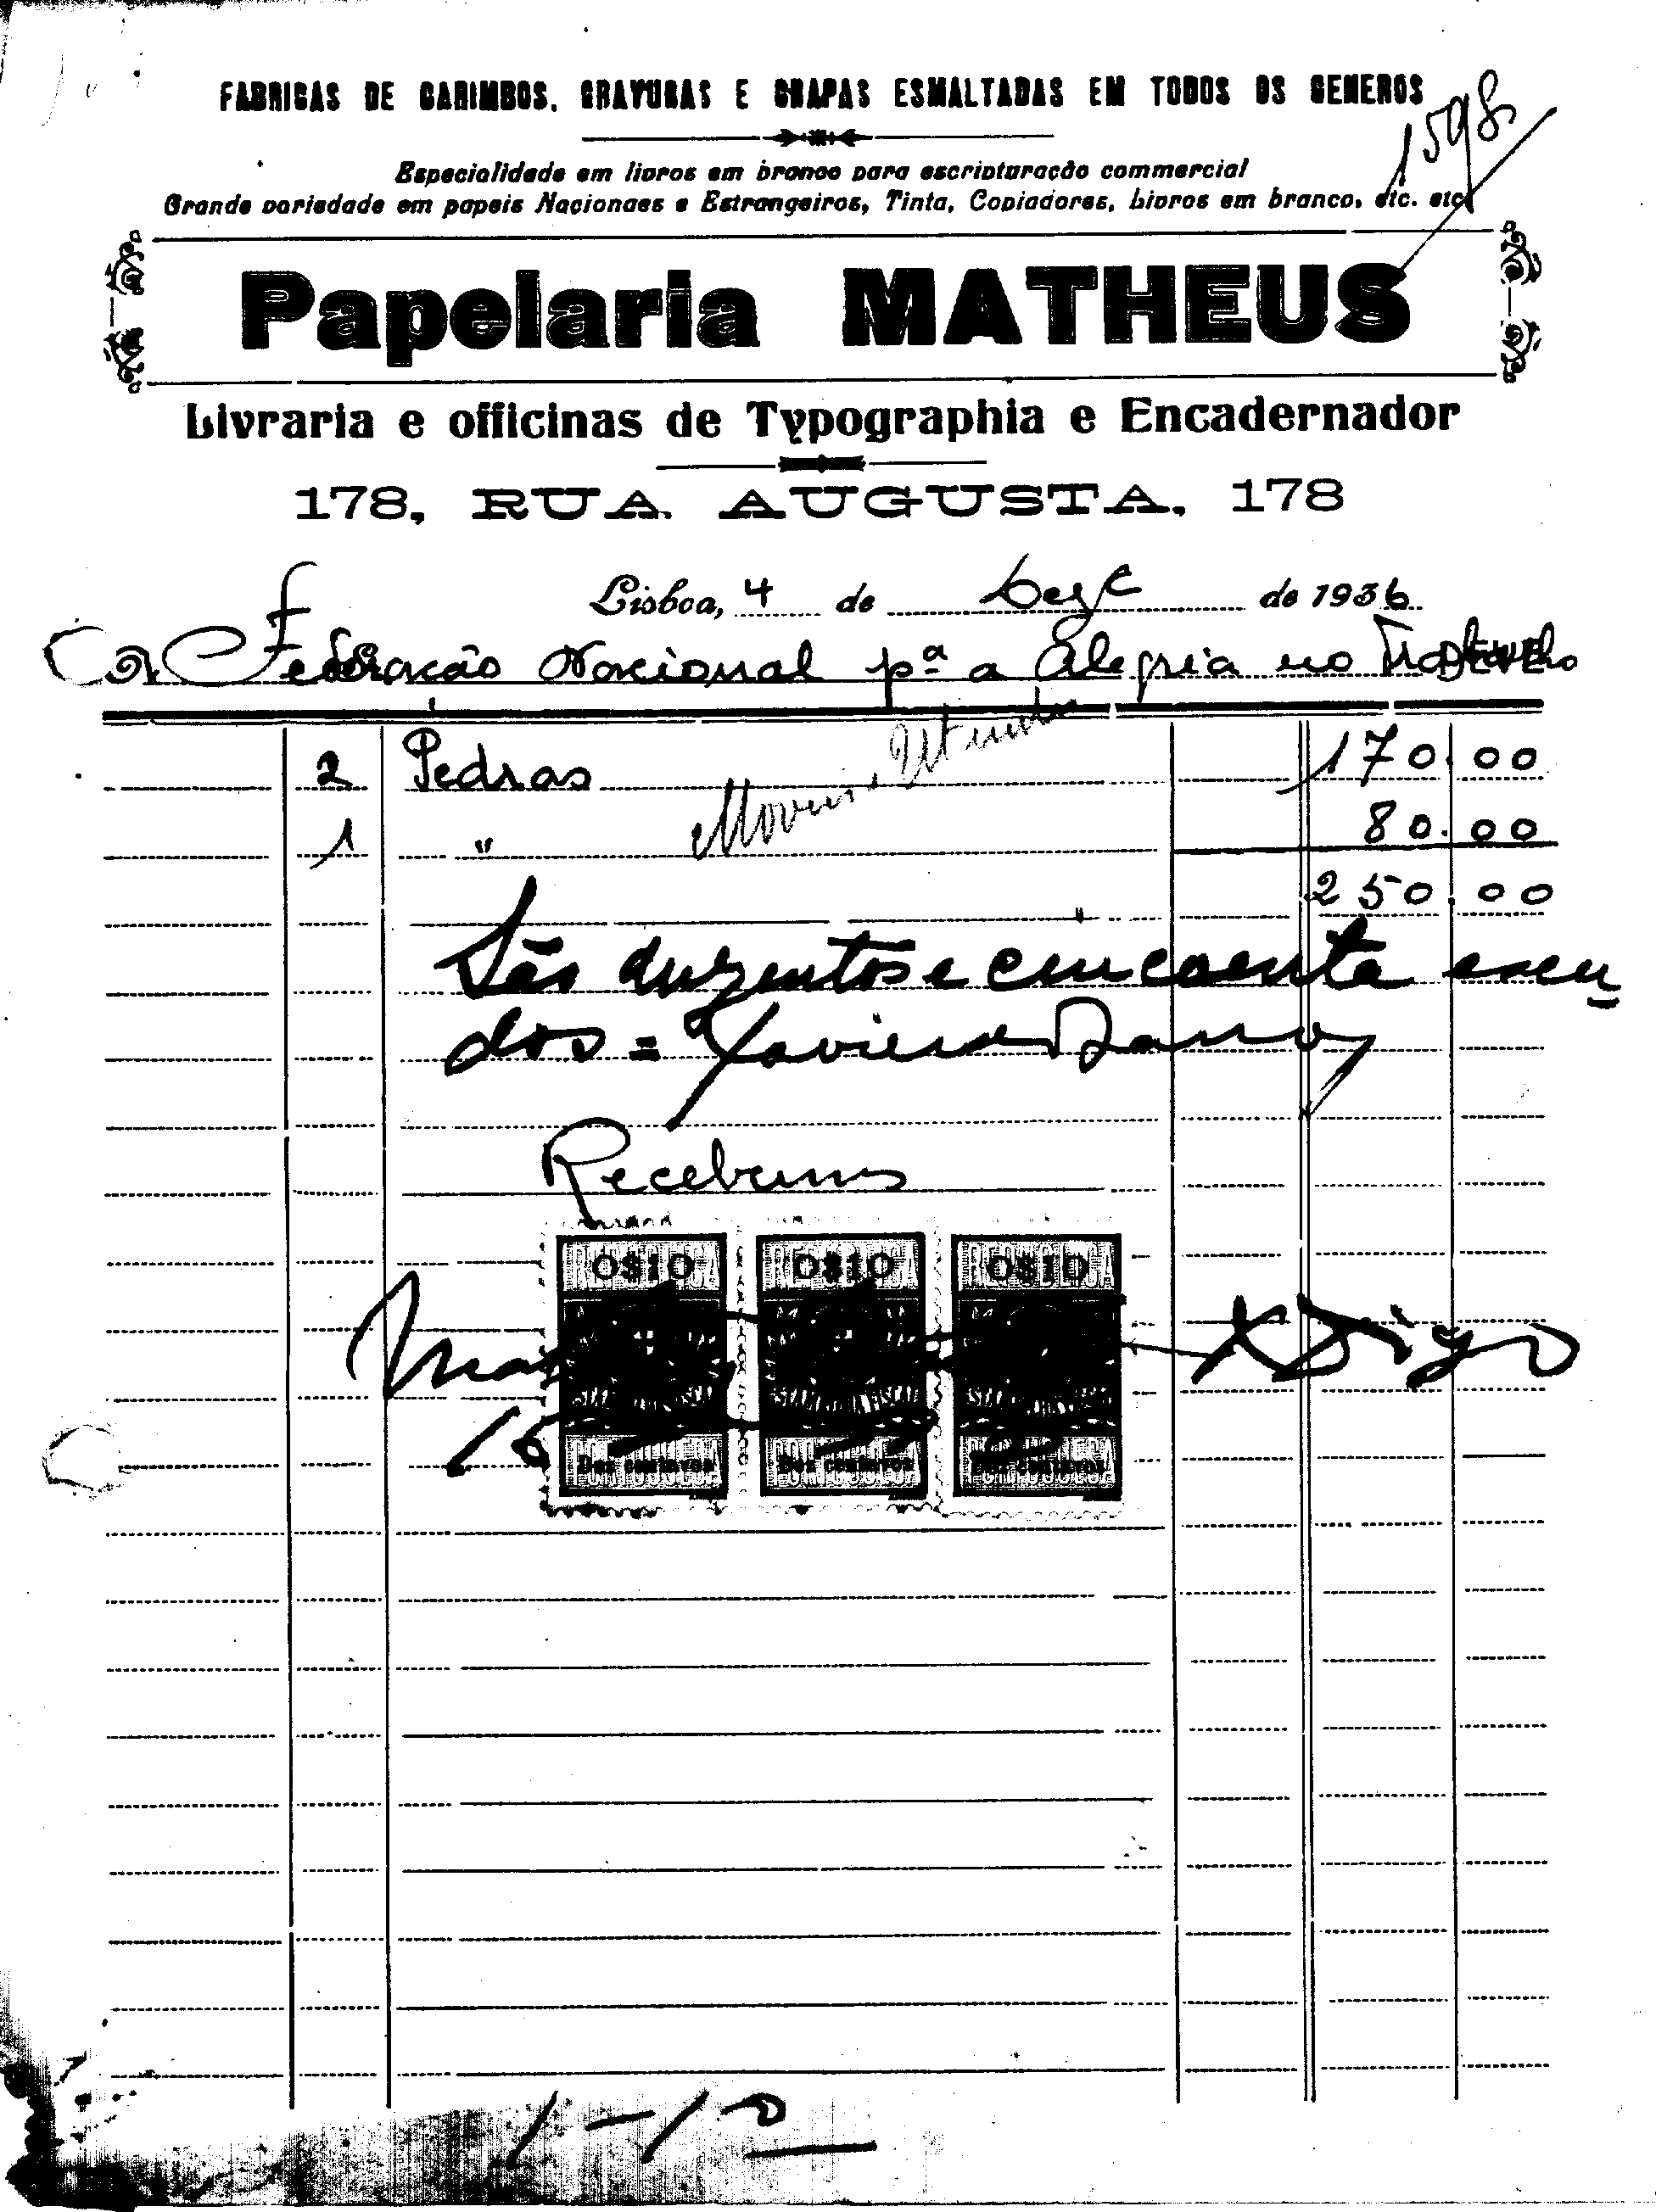 FABRICAS DE CARIMBOS, GRAVURAS E CHAPAS ESMALTADAS EM TODOS OS GENEROS
1598
Especialidade em livros em branco para escripturação commercial
Grande variedade em papeis Nacionaes e Estrangeiros, Tinta, Copiadores, Livros em branco, etc. etc.
Papelaria MATHEUS
Livraria e officinas de Typographia e Encadernador
178, RUA AUGUSTA, 178
Lisboa, 4 de de 1936
Federação Nacional pª a Alegria no Trabalho
DEVE
2 Pedras 170.00
1 " 80.00
250.00
São duzentos e cincoenta escu
dos = Xavier de Barros
Recebemos
0$10 0$10 0$10
ESTAMPILHA FISCAL ESTAMPILHA FISCAL ESTAMPILHA FISCAL
Dez centavos Dez centavos Dez centavos
1-10